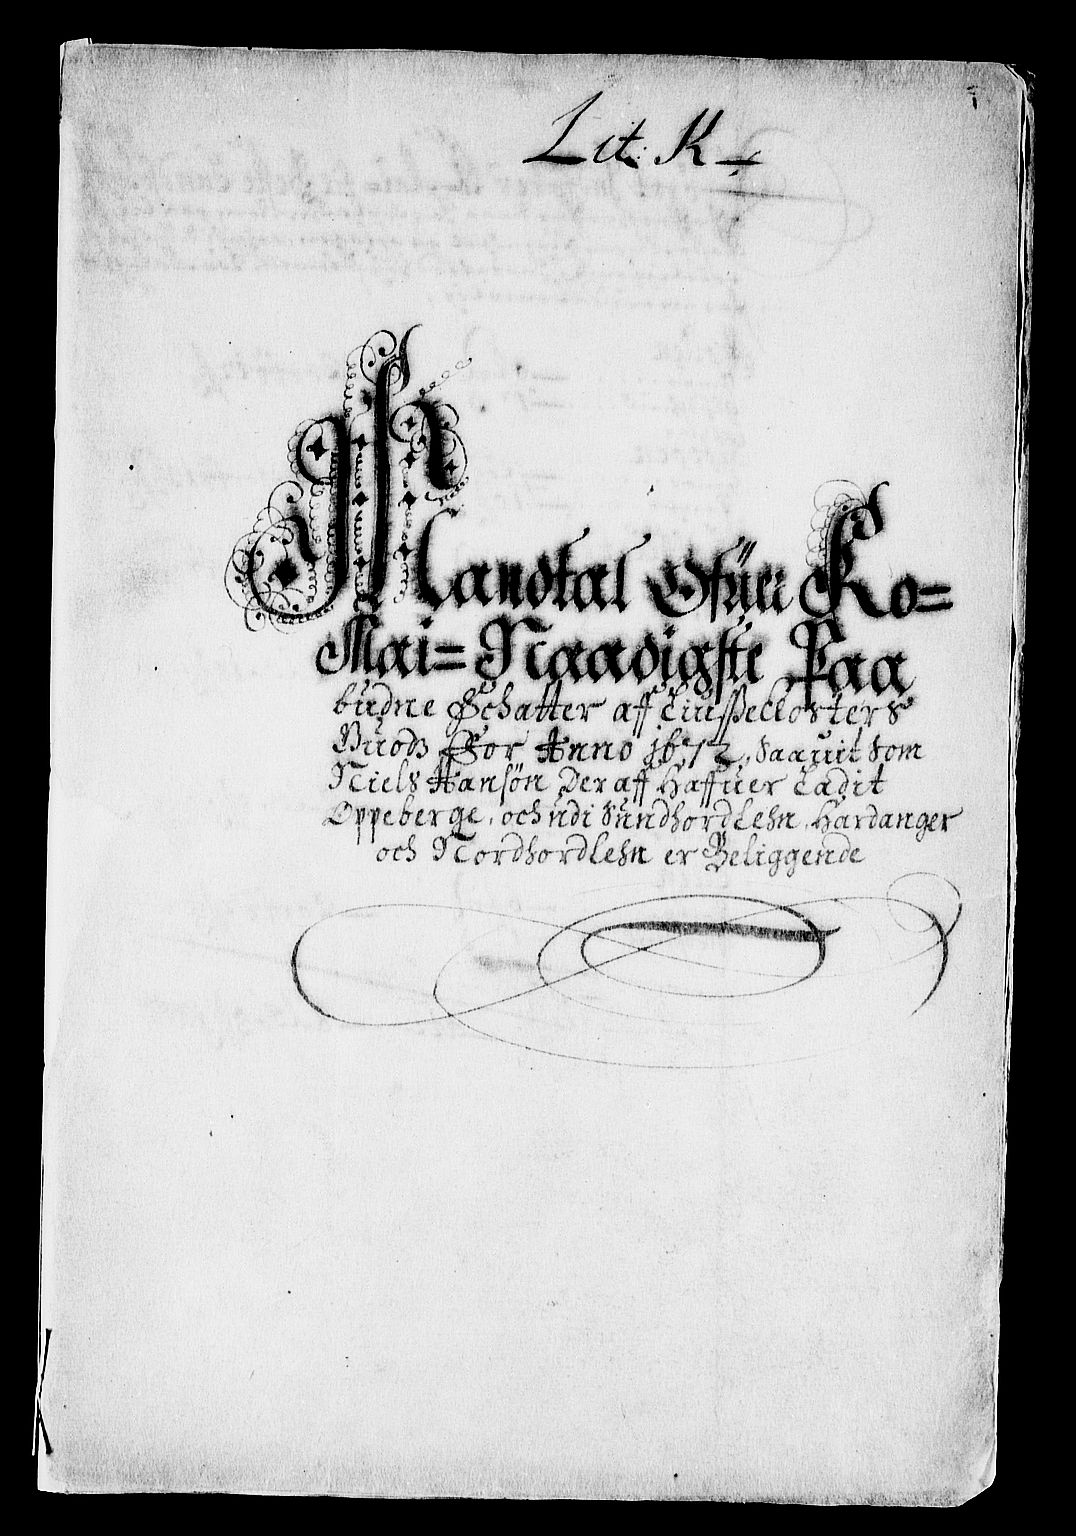 Lit: K
Mandtal Ofuer Ko=
Mai= Naadigste Paa
budne Schatter aff Liusseclosters
Guods For Anno 1672, Saauit Som
Niels Hansøn Der aff Haffuer Ladit
Oppeberge, och udi Sundhordlehn, Hardanger
och Nordhordlehn er Beliggende